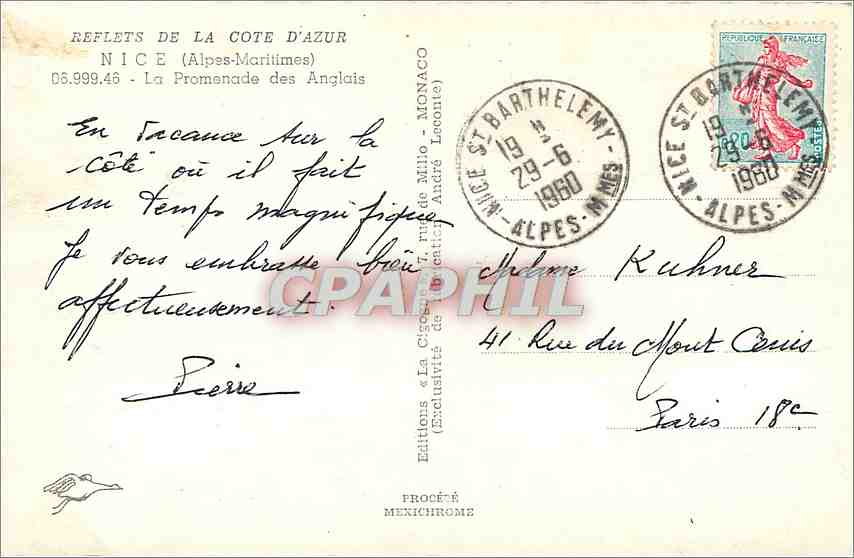 REFLETS DE LA COTE D'AZUR
NICE (Alpes-Maritimes)
06.999.46 - La Promenade des Anglais
En vacance sur la
côte où il fait
un temps magnifique
Je vous embrasse bien
affectueusement.
Pierre
Editions « La Cigogne » 7, rue de Millo - MONACO
(Exclusivité de fabrication André Leconte)
NICE ST BARTHELEMY -
19 H
29-6
1960
- ALPES - MMES
REPUBLIQUE FRANÇAISE
0,20
POSTES
NICE ST BARTHELEMY
19 H
29-6
1960
- ALPES - MMES -
Madame Kuhner
41 Rue du Mont Cenis
Paris 18e
CPAPHIL
PROCÉDÉ
MEXICHROME